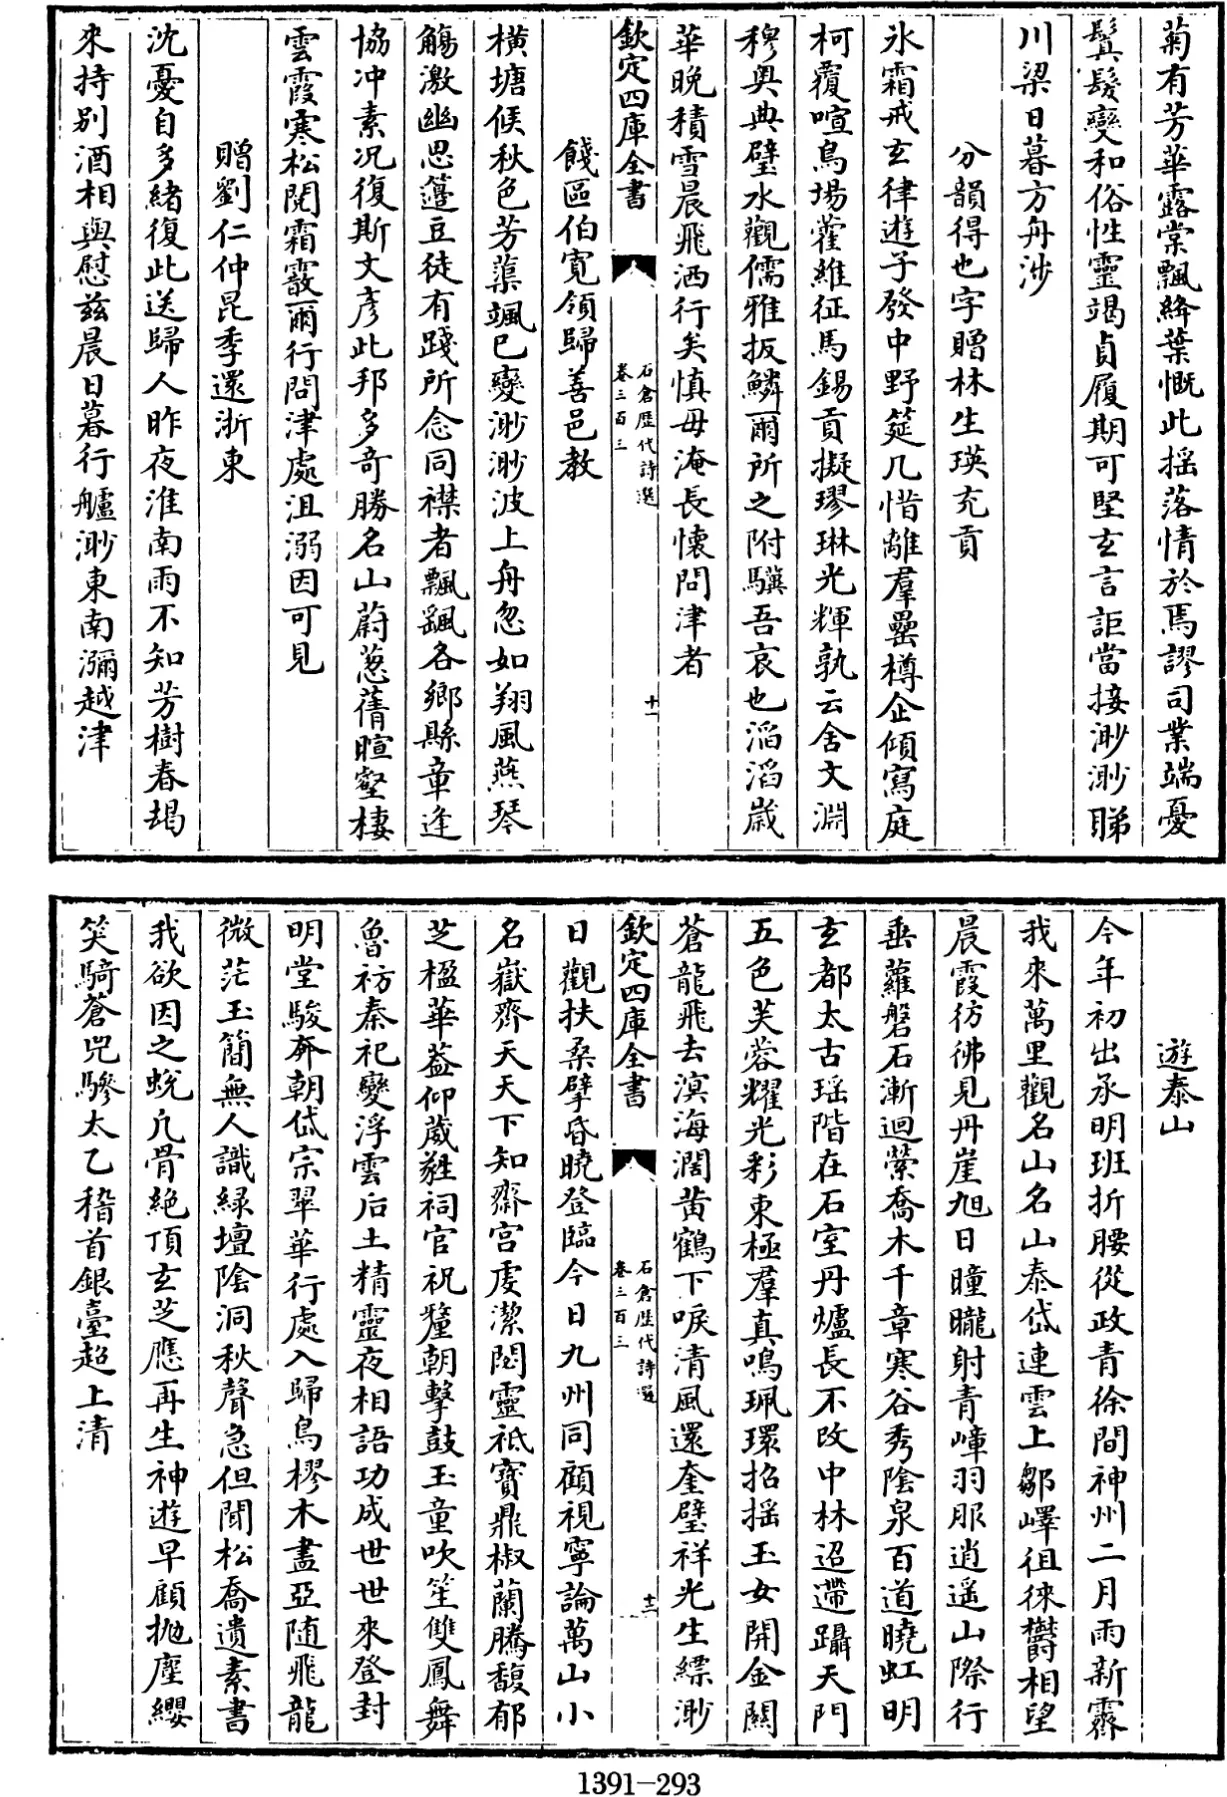 菊有芳華露棠飄絳葉慨此揺落情於焉謬司業端憂
鬂髮變和俗性靈竭貞履期可堅玄言詎當接渺渺睇
川梁日暮方舟涉
分韻得也字贈林生瑛充貢
氷霜戒玄律遊子發中野筵几惜離羣罍樽企傾寫庭
柯覆喧鳥場藿維征馬錫貢擬璆琳光輝孰云舍文淵
穆奥典璧水觀儒雅扳鱗爾所之附驥吾哀也滔滔歳
華晚積雪晨飛洒行矣慎毋淹長懷問津者
欽定四庫全書
石倉歴代詩選
卷三百三
十一
餞區伯寛領歸善邑教
横塘候秋色芳蕖颯已變渺渺波上舟忽如翔風燕琴
觴激幽思籩豆徒有踐所念同襟者飄颻各鄉縣章逢
協冲素况復斯文彦此邦多奇勝名山蔚葱蒨暄壑棲
雲霞寒松閱霜霰爾行問津處沮溺因可見
贈劉仁仲昆季還浙東
沈憂自多緒復此送歸人昨夜淮南雨不知芳樹春朅
來持别酒相與慰兹晨日暮行艫渺東南瀰越津
遊泰山
今年初出承明班折腰從政青徐間神州二月雨新霽
我來萬里觀名山名山泰岱連雲上鄒嶧徂徠鬱相望
晨霞彷彿見丹崖旭日曈曨射青嶂羽服逍遥山際行
垂蘿磐石漸迴縈喬木千章寒谷秀陰泉百道曉虹明
玄都太古瑶階在石室丹爐長不改中林迢遰躡天門
五色芙蓉耀光彩東極羣真鳴珮環招揺玉女開金闗
蒼龍飛去溟海濶黄鶴下唳清風還奎璧祥光生縹渺
欽定四庫全書
石倉歴代詩選
卷三百三
十二
日觀扶桑擘昏曉登臨今日九州同顧視寧論萬山小
名嶽齊天天下知齋宫䖍潔閟靈祗寳鼎椒蘭騰馥郁
芝楹華葢仰葳蕤祠官祝釐朝擊鼓玉童吹笙雙鳳舞
魯祊秦祀變浮雲后土精靈夜相語功成世世來登封
明堂駿奔朝岱宗翠華行處入歸鳥樛木盡亞随飛龍
微茫玉簡無人識緑壇陰洞秋聲急但聞松喬遺素書
我欲因之蛻凡骨絶頂玄芝應再生神遊早顧抛塵纓
笑騎蒼兕驂太乙稽首銀臺超上清
1391—293